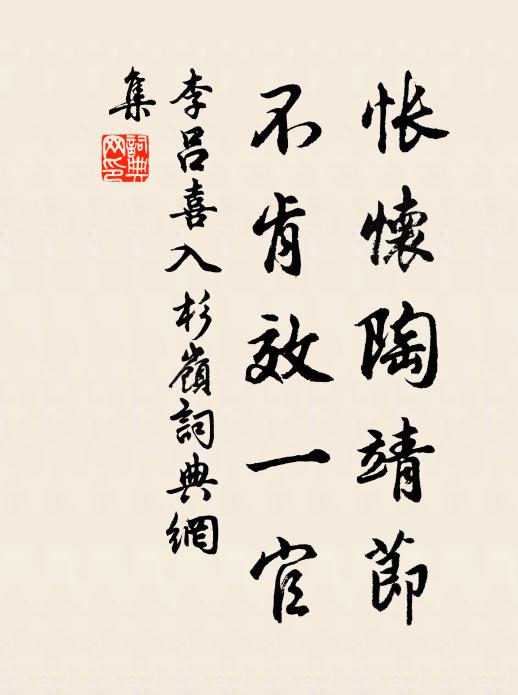 怅懷陶靖節
不肯效一官
李吕喜入杉嶺詞典網
集
詞典網印